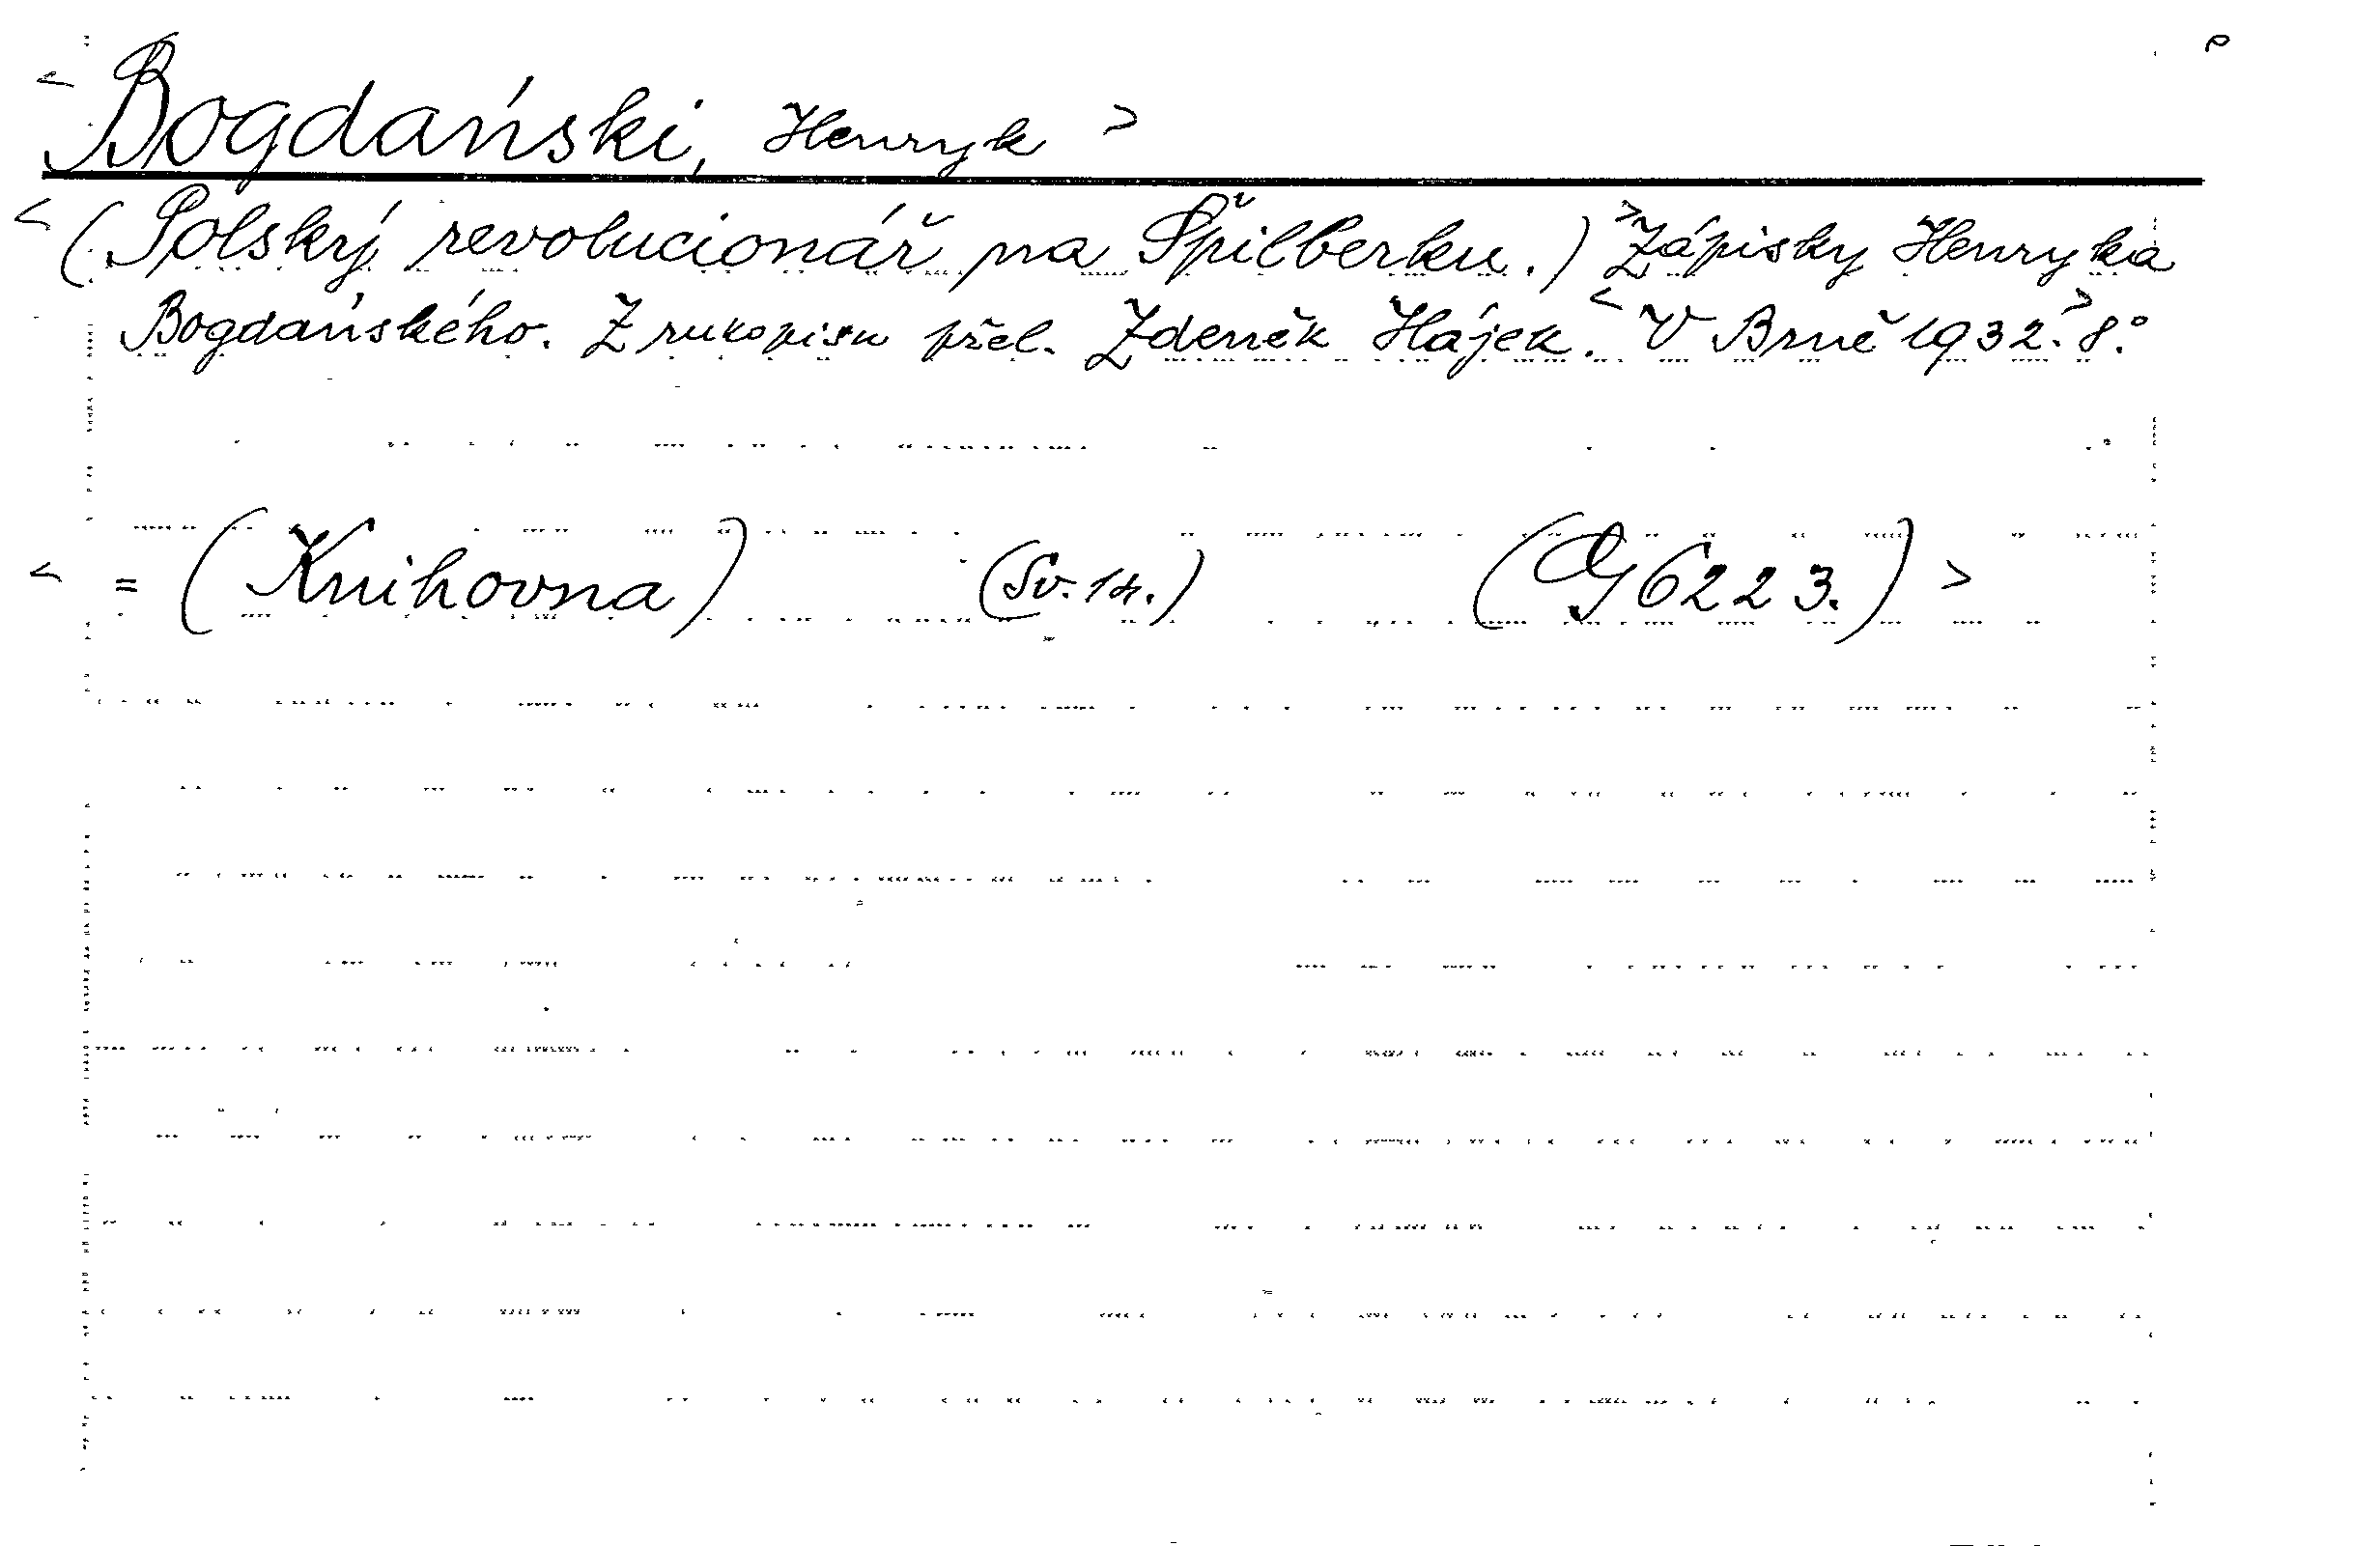 <Bogdański, Henryk>
<(Polský revolucionář na Špilberku.)> Zápisky Henryka
Bogdańského. Z rukopisu přel. Zdeněk Hájek. <V Brně 1932.> 8.°
<= (Knihovna) (Sv. 14.) (G 6223.)>